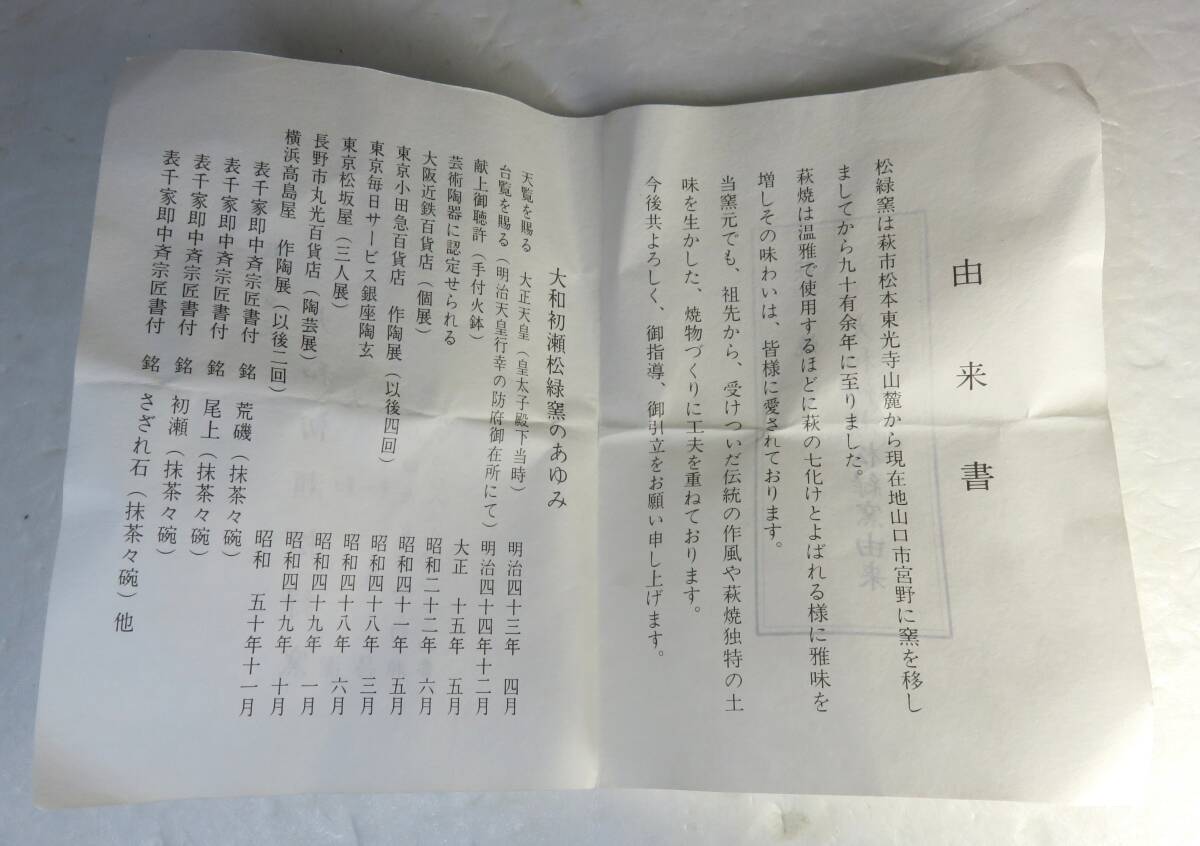 由来書
松緑窯は萩市松本東光寺山麓から現在地山口市宮野に窯を移し
ましてから九十有余年に至りました。
萩焼は温雅で使用するほどに萩の七化けとよばれる様に雅味を
増しその味わいは、皆様に愛されております。
当窯元でも、祖先から、受けついだ伝統の作風や萩焼独特の土
味を生かした、焼物づくりに工夫を重ねております。
今後共よろしく、御指導、御引立をお願い申し上げます。
大和初瀬松緑窯のあゆみ
天覧を賜る 大正天皇(皇太子殿下当時) 明治四十三年 四月
台覧を賜る(明治天皇行幸の防府御在所にて) 明治四十四年十二月
献上御聴許(手付火鉢) 大正 十五年 五月
芸術陶器に認定せられる 昭和二十二年 六月
大阪近鉄百貨店(個展) 昭和四十一年 五月
東京小田急百貨店 作陶展(以後四回) 昭和四十八年 三月
東京毎日サービス銀座陶玄 昭和四十八年 六月
東京松坂屋(三人展) 昭和四十九年 一月
長野市丸光百貨店(陶芸展) 昭和四十九年 十月
横浜高島屋 作陶展(以後二回) 昭和 五十年十一月
表千家即中斉宗匠書付 銘 荒磯(抹茶々碗)
表千家即中斉宗匠書付 銘 尾上(抹茶々碗)
表千家即中斉宗匠書付 銘 初瀬(抹茶々碗)
表千家即中斉宗匠書付 銘 さざれ石(抹茶々碗)他
松緑窯由来